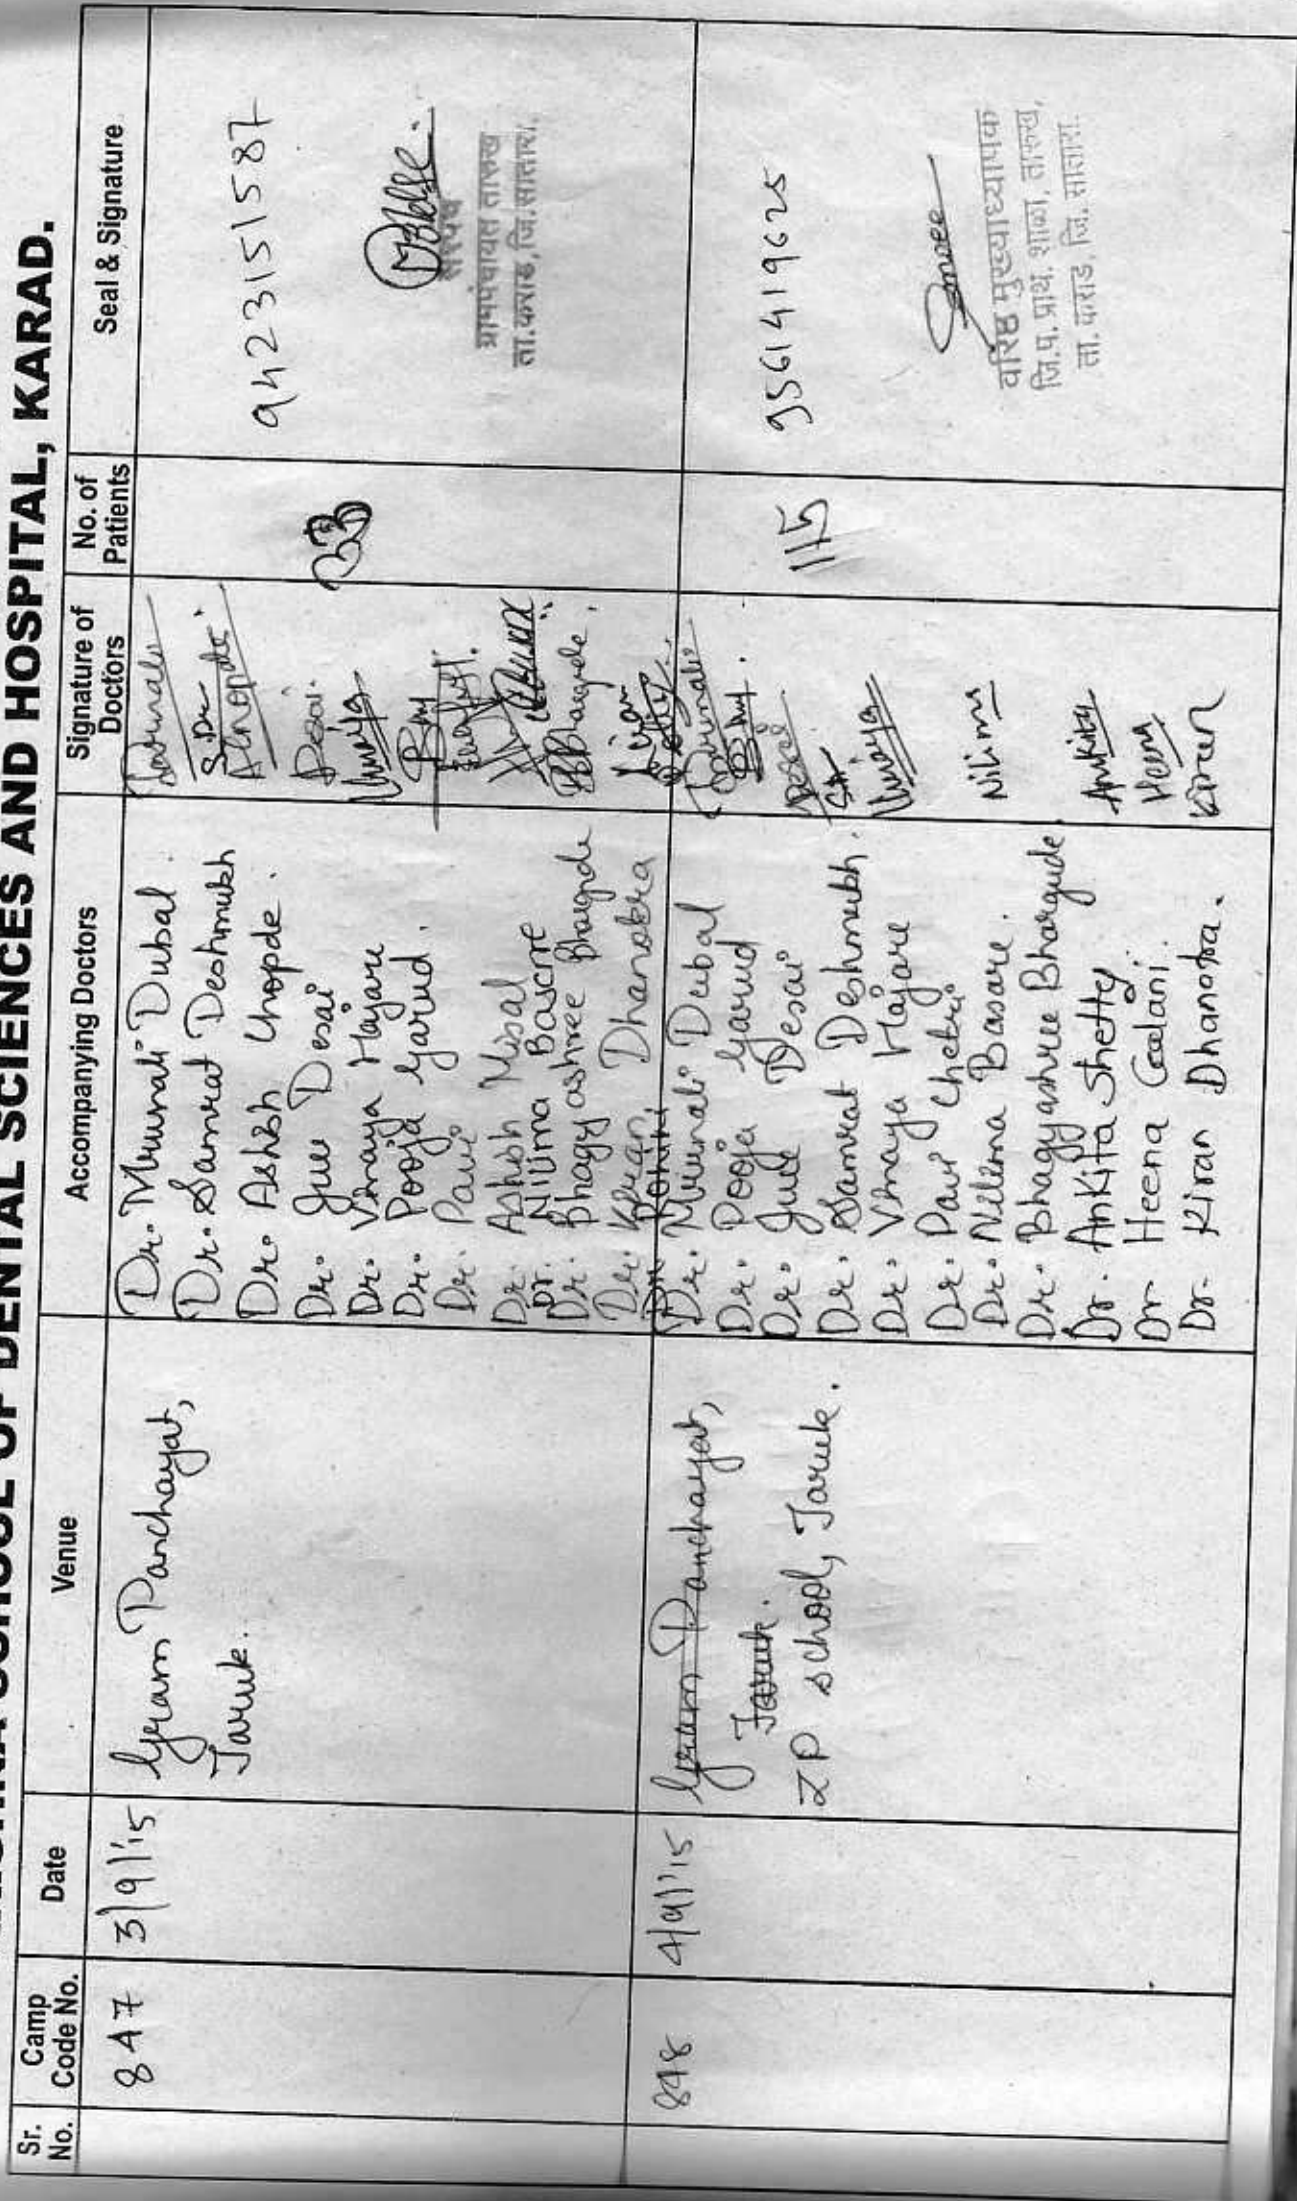 SCHOOL OF DENTAL SCIENCES AND HOSPITAL, KARAD.
Sr. No.
Camp Code No.
Date
Venue
Accompanying Doctors
Signature of Doctors
No. of Patients
Seal & Signature
847
3/9/'15
Gram Panchayat,
Taruk.
Dr. Mrunali Dubal
Dr. Samrat Deshmukh
Dr. Ashish Chopde.
Dr. Jue Desai
Dr. Vinaya Hajare
Dr. Pooja Garud.
Dr. Pavi
Dr. Ashish Misal
Dr. Nilima Basarre
Dr. Bhagyashree Bhargude
Dr. Kiran Dhanotra
Dr. Rohini
Mrunali
Desai
Vinaya
Bhargude.
Kiran
33
9423151587
सरपंच
ग्रामपंचायत तारुख
ता.कराड, जि.सातारा.
848
4/9/'15
Gram Panchayat,
Taruk.
ZP school, Taruk.
Dr. Mrunali Dubal
Dr. Pooja Garud
Dr. Jue Desai
Dr. Samrat Deshmukh.
Dr. Vinaya Hajare
Dr. Pavi Chetri
Dr. Nilima Basare.
Dr. Bhagyashree Bhargude.
Dr. Ankita Shetty
Dr Heena Gadani.
Dr. Kiran Dhanotra.
Mrunali
Desai
Vinaya
Nilima
Ankita
Heena
Kiran
115
9561419625
वरिष्ठ मुख्याध्यापक
जि.प. प्राथ. शाळा, तारुख,
ता. कराड, जि. सातारा.